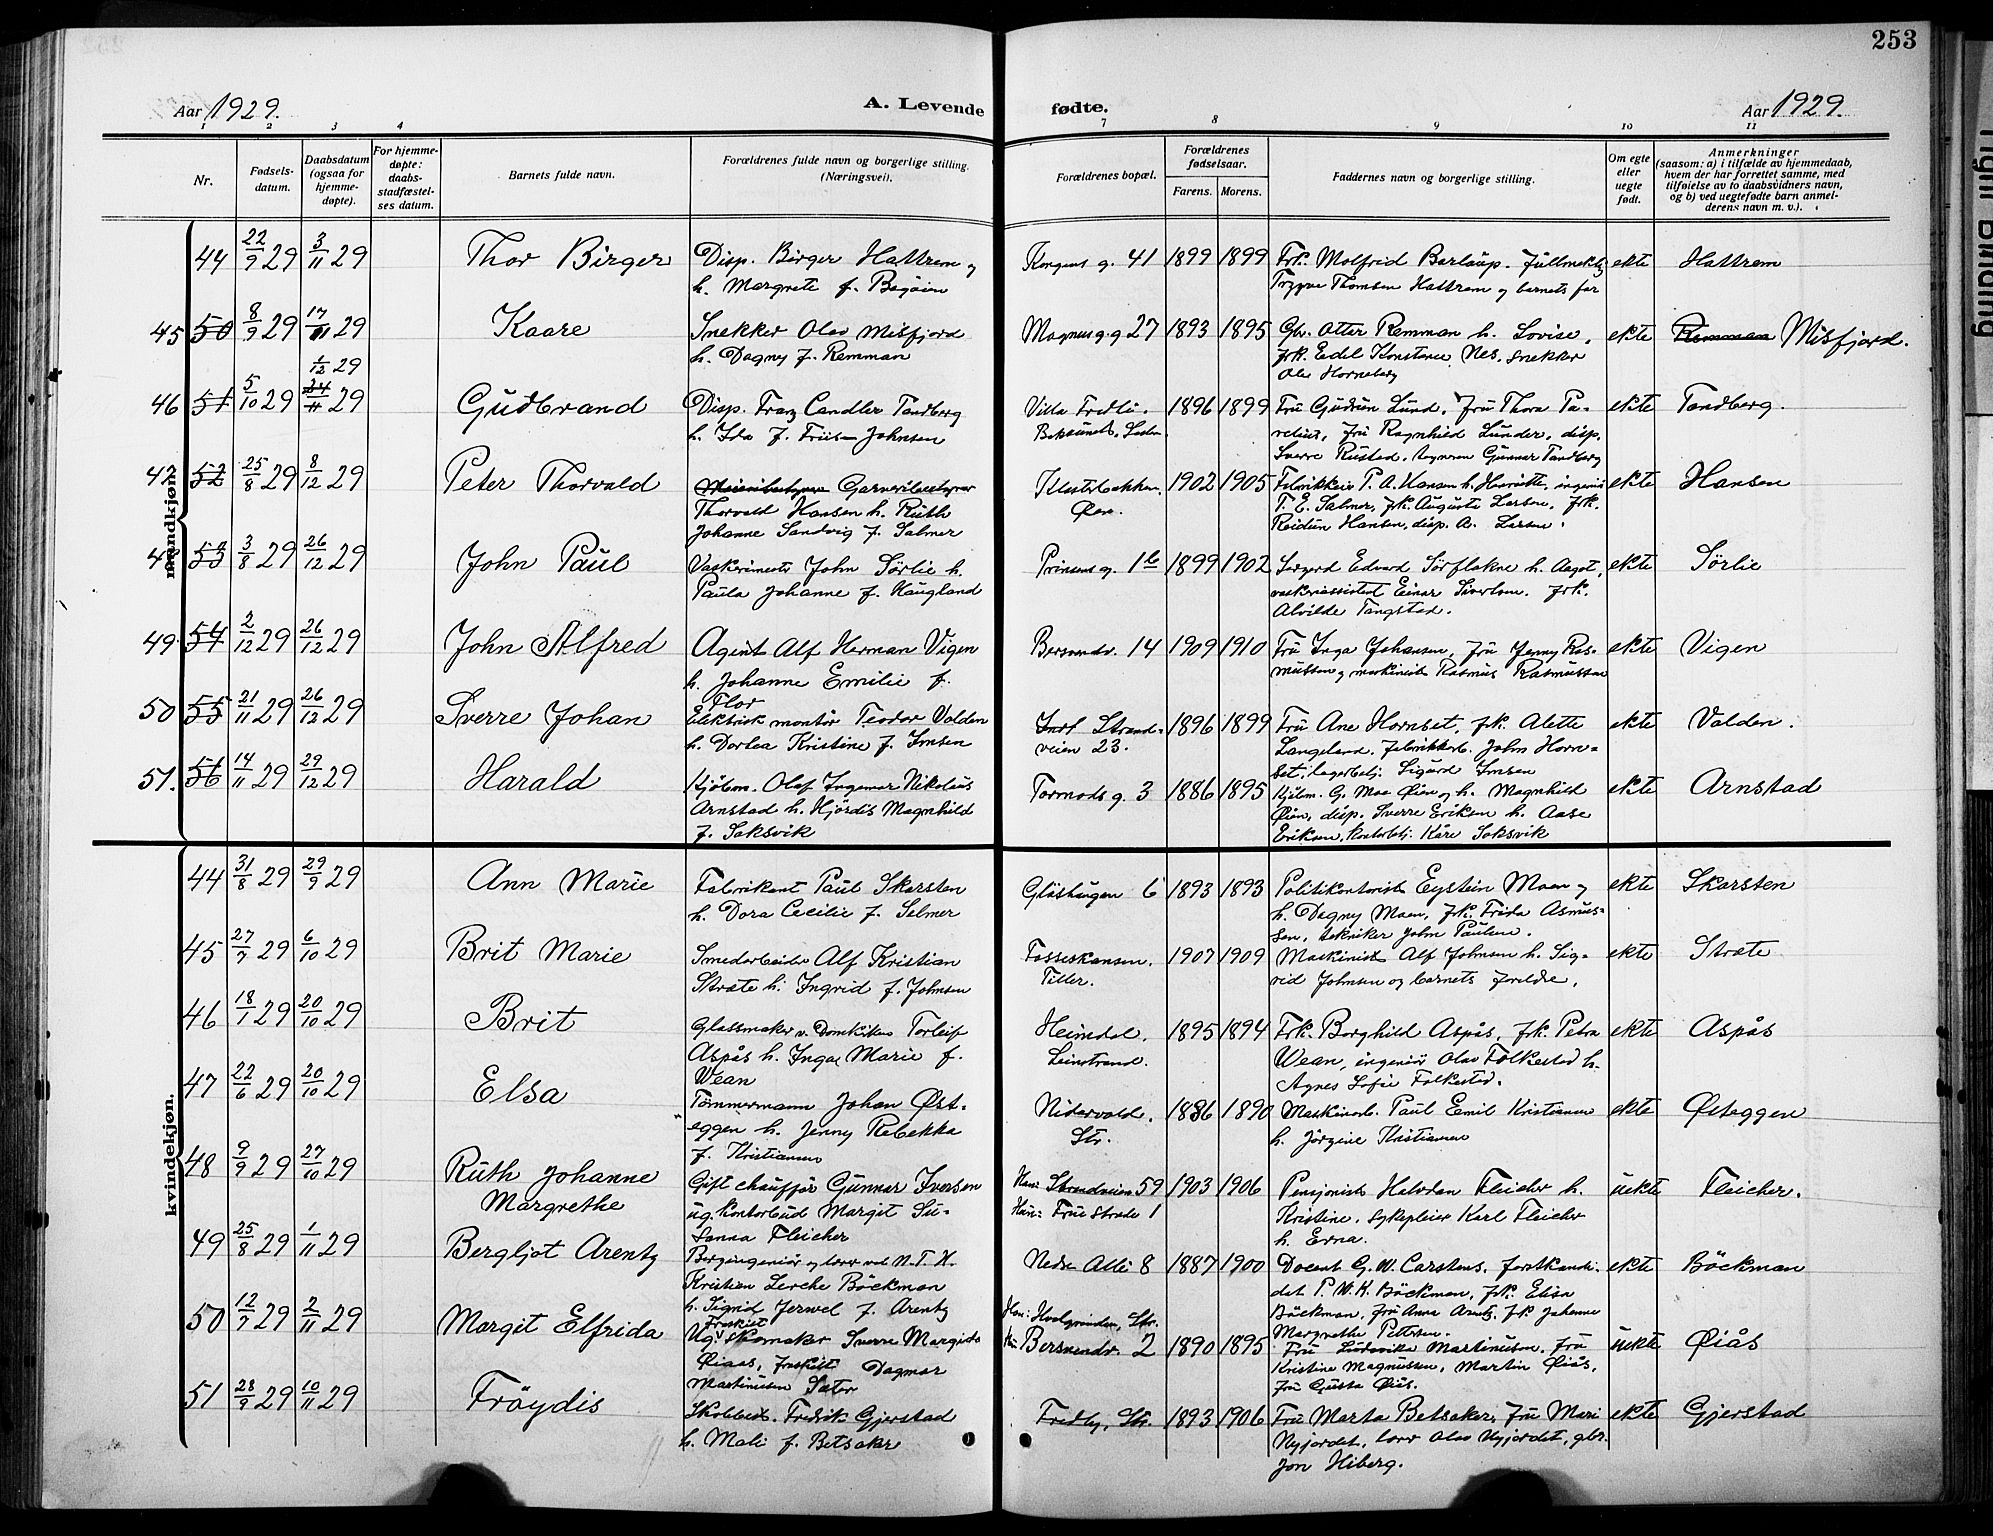 253
Aar 1929.
A. Levende
fødte.
Aar 1929.
1 2 3 4 7 8 9 10 11
Nr.
Fødsels-
datum.
Daabsdatum
(ogsaa for
hjemme-
døpte).
For hjemme-
døpte:
daabs-
stadfæstel-
ses datum.
Barnets fulde navn.
Forældrenes fulde navn og borgerlige stilling.
(Næringsvei).
Forældrenes bopæl.
Forældrenes
fødselsaar.
Farens. Morens.
Faddernes navn og borgerlige stilling.
Om egte
eller
uegte
født.
Anmerkninger
(saasom: a) i tilfælde av hjemmedaab,
hvem der har forrettet samme, med
tilføielse av to daabsvidners navn,
og b) ved uegtefødte barn anmel-
derens navn m. v.).
mandkjøn.
44 22/9 29 3/11 29 Thor Birger
Disp. Birger Hattrem og
h. Margrete f.
Kongens g. 41 1899 1899
Frk. Molfrid
Trygve Thomsen Hattrem og barnets far
ekte Hattrem
45 50 8/9 29 17/11 29 Kaare
Snekker Olav Misfjord
h. Dagny f. Remman
Magnus g. 27 1893 1895
Gbr. Otter Remman h. Lovise,
frk. Eidel Konstanse Nes, snekker
Ole Horneberg
ekte Remman Misfjord.
46 51 5/10 29 1/12 29 24/11 29 Gudbrand
Disp. Franz Candler Tandberg
h. Ida f. Friis-Johnsen
Villa Fredli. 1896 1899
Fru Gudrun Lund, Fru Thora Pa-
relius, fru Ragnhild Lunder, disp.
Sverre Rustad, Gunnar Tandberg
ekte Tandberg.
42 52 25/8 29 8/12 29 Peter Thorvald
Garveribestyrer
Thorvald Hansen h. Ruth
Johanne Sandvig f. Salmer
Klosterbakken.
Øen.
1902 1905
Fabrikkeier P. A. Hansen h. Henriette, ingeniør
T. E. Salmer, frk. Augusta Larsen, frk.
Reidun Hansen, disp. A. Larsen.
ekte Hansen
53 3/8 29 26/12 29 John Paul
John Sørlie h.
Paula Johanne f. Haugland
Prinsens g. 1b 1899 1902
Edvard Sørflakne h. Aagot,
vaskeriassistent Einar Sivertsen, frk.
Alvilde Tangstad.
ekte Sørlie
49. 54 2/12 29 26/12 29 John Alfred
Agent Alf Herman Vigen
h. Johanne Emilie f.
Flor
Bersvendv. 14 1909 1910
Fru Inga Johansen, Fru Jenny Ras-
mussen og maskinist Rasmus Rasmussen
ekte Vigen
50 55 21/11 29 26/12 29 Sverre Johan
Elektrisk montør Teodor Valden
h. Dorlea Kristine f. Imsen
Indh. Strand-
veien 23.
1896 1899
Fru Ane Hornset, frk. Alette
Langeland, fabrikkarb. John Horn-
set, lagerbetj. Sigurd Imsen
ekte Valden.
51. 56 14/11 29 29/12 29 Harald
Kjøbm. Olaf Ingemar Nikolaus
Arnstad h. Hjördis Magnhild
f. Saksvik
Tormods g. 3 1886 1895
Kjøbm. G. Moe Øien og h. Magnhild
Øien, disp. Sverre Eriksen h. Aase
Eriksen, kontorbetj. Kåre Saksvik
ekte Arnstad
kvindekjøn.
44 31/8 29 29/9 29 Ann Marie
Fabrikant Paul Skarsten
h. Dora Cecilie f. Selmer
Glåshaugen 6 1893 1893
Politikontorist Eystein Moen og
h. Dagny Moen, frk. Frida Asmus-
sen, tekniker John Paulsen.
ekte Skarsten
45 27/7 29 6/10 29 Brit Marie
Smedarbeider Alf Kristian
Stræte h. Ingrid f. Johnsen
Fosseskansen.
Tiller.
1907 1909
Maskinist Alf Johnsen h. Sig-
rid Johnsen og barnets foreldre.
ekte Stræte
46 18/1 29 20/10 29 Brit
Glassmaker v. Domkirken Torleif
Aspås h. Inga Marie f.
Wean
Heimdal.
Leinstrand.
1895 1894
Frk. Borghild Aspås, frk. Petra
Wean, ingeniør Olav Folkestad h.
Agnes Sofie Folkestad.
ekte Aspås
47 22/6 29 20/10 29 Elsa
Tømmermann Johan Øst-
eggen h. Jenny Rebekka
f. Kristiansen
Nidarvold.
Str.
1886 1890
Maskinarb. Paul Emil Kristiansen
h. Jörgine Kristiansen
ekte Østeggen
48 9/9 29 27/10 29 Ruth Johanne
Margrethe
Gift chauffør Gunnar Iversen
ug. kontorbud Margit Su-
sanna Fleicher
Han: Strandveien 59
Hun: Frue Stræde 1
1903 1906
Pensjonist Halvdan Fleicher h.
Kristine, sykepleier Karl Fleicher
h. Erna.
uekte Fleicher.
49 25/8 29 1/11 29 Bergljot Arentz
Bergingeniør og lærer ved N. T. H.
Kristian Lerche Böckman
h. Sigrid Jerwel f. Arentz
Nedre Alle 8 1887 1900
Docent G. W. Carstens, forstkandi-
dat P. W. K. Böckman, frk. Elisa
Böckman, fru Anna Arentz, frk. Johanne
Margrethe Pettersen.
ekte Böckman
50 12/7 29 2/11 29 Margit Elfrida
Fraskilt
Ug. skomaker Sverre Margido
Øiaas, fraskilt Dagmar
Martinusen Sæter
Hun: Bersvendv. 2
1890 1895
Fru Ludovikke Martinusen, fru
Kristine Magnussen, Martin Øiås,
fru Gusta Øiås.
uekte Øiås
51 28/9 29 10/11 29 Fröydis
Skolebest. Fredrik Gjerstad
h. Mali f. Betsaker
Fredly, Str. 1893 1906
Fru Marta Betsaker, Fru Mari
Nyjordet, lærer Olav Nyjordet, gbr.
Jon Hiberg.
ekte Gjerstad